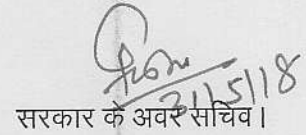 31/5/18
सरकार के अवर सचिव।